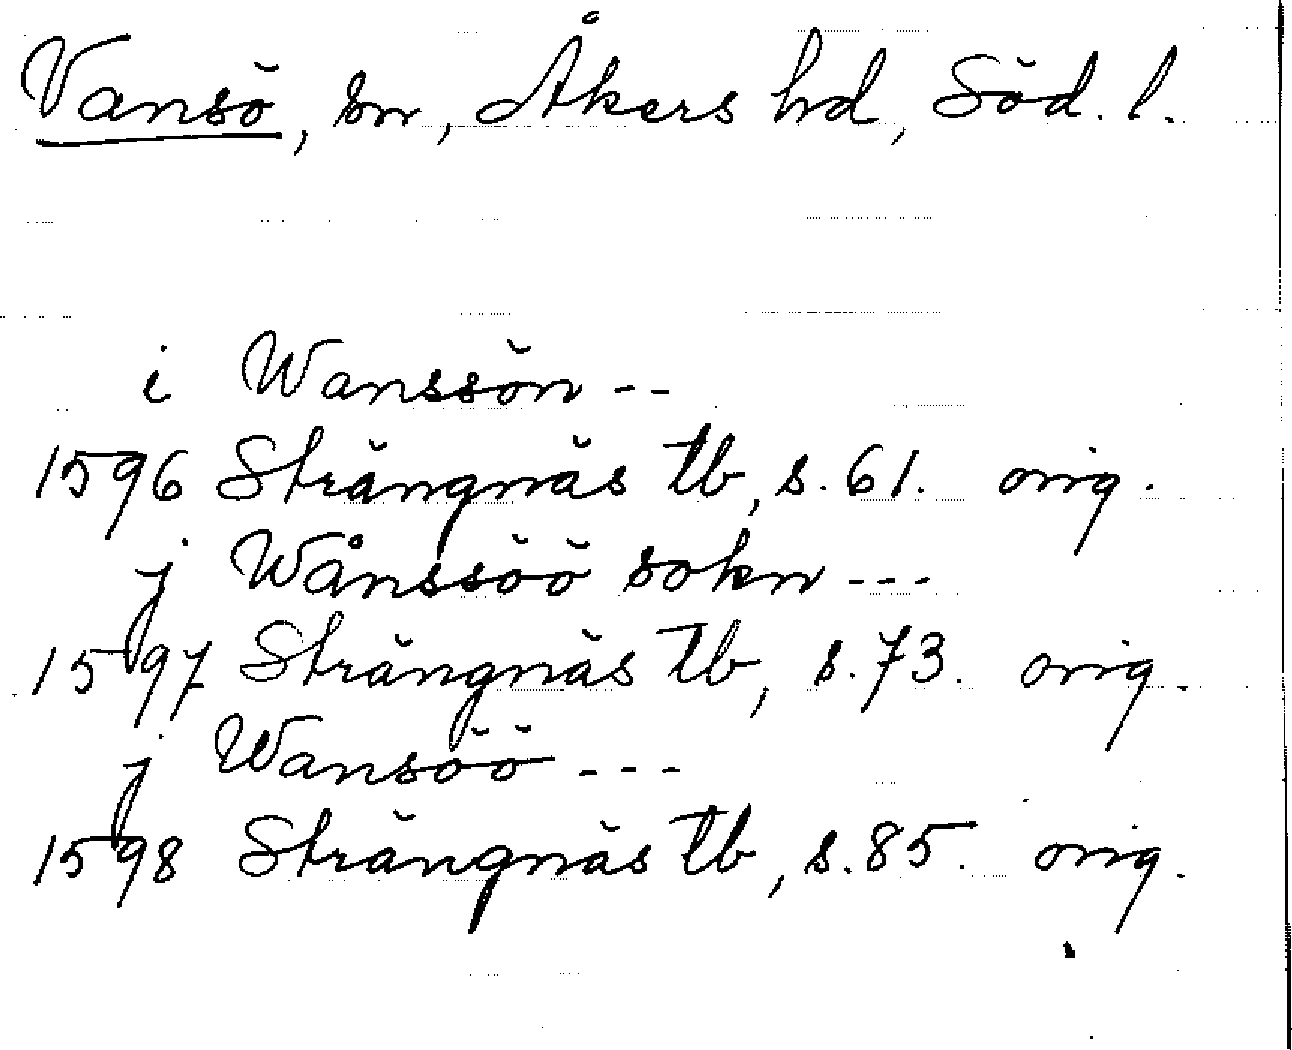 Vansö, sn, Åkers hd, Söd. l.
i Wanssön --
1596 Strängnäs tb, s. 61. orig.
j Wånssöö sokn ---
1597 Strängnäs tb, s. 73. orig.
j Wansöö ---
1598 Strängnäs tb, s. 85. orig.